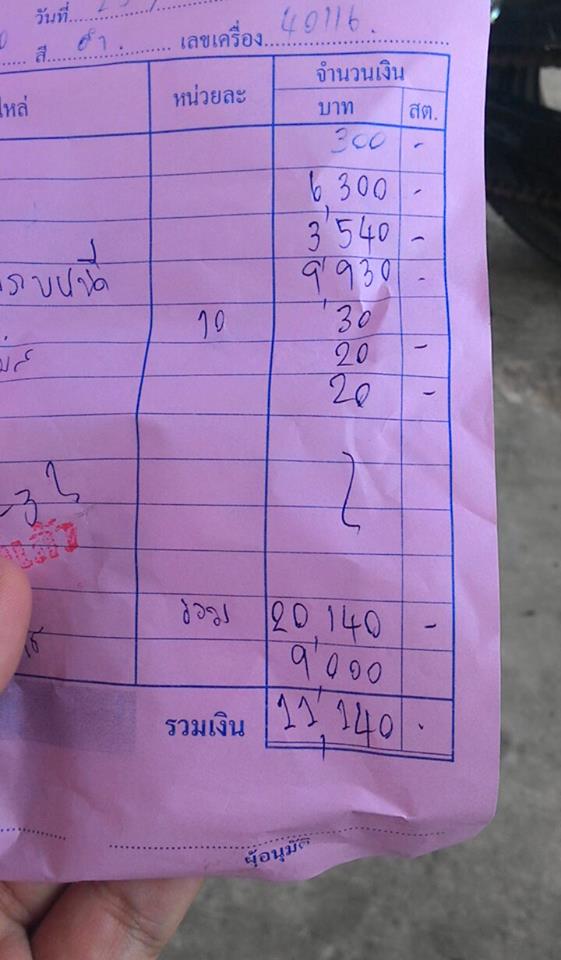 วันที่
สี ดำ. เลขเครื่อง 40116.
จำนวนเงิน
ไหล่ หน่วยละ บาท สต.
300 -
6,300 -
3,540 -
9,930 -
10 30
20 -
20 -
รวม 20,140 -
9,000
รวมเงิน 11,140 .
ผู้อนุมัติ